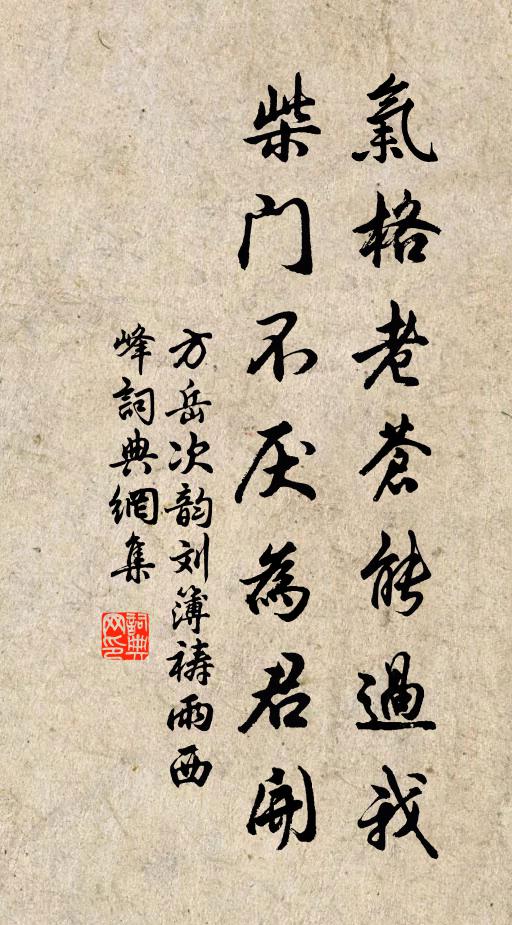 氣格老蒼能過我
柴门不厌為君開
方岳次韵刘簿禱雨西
峰詞典網集
詞典网印